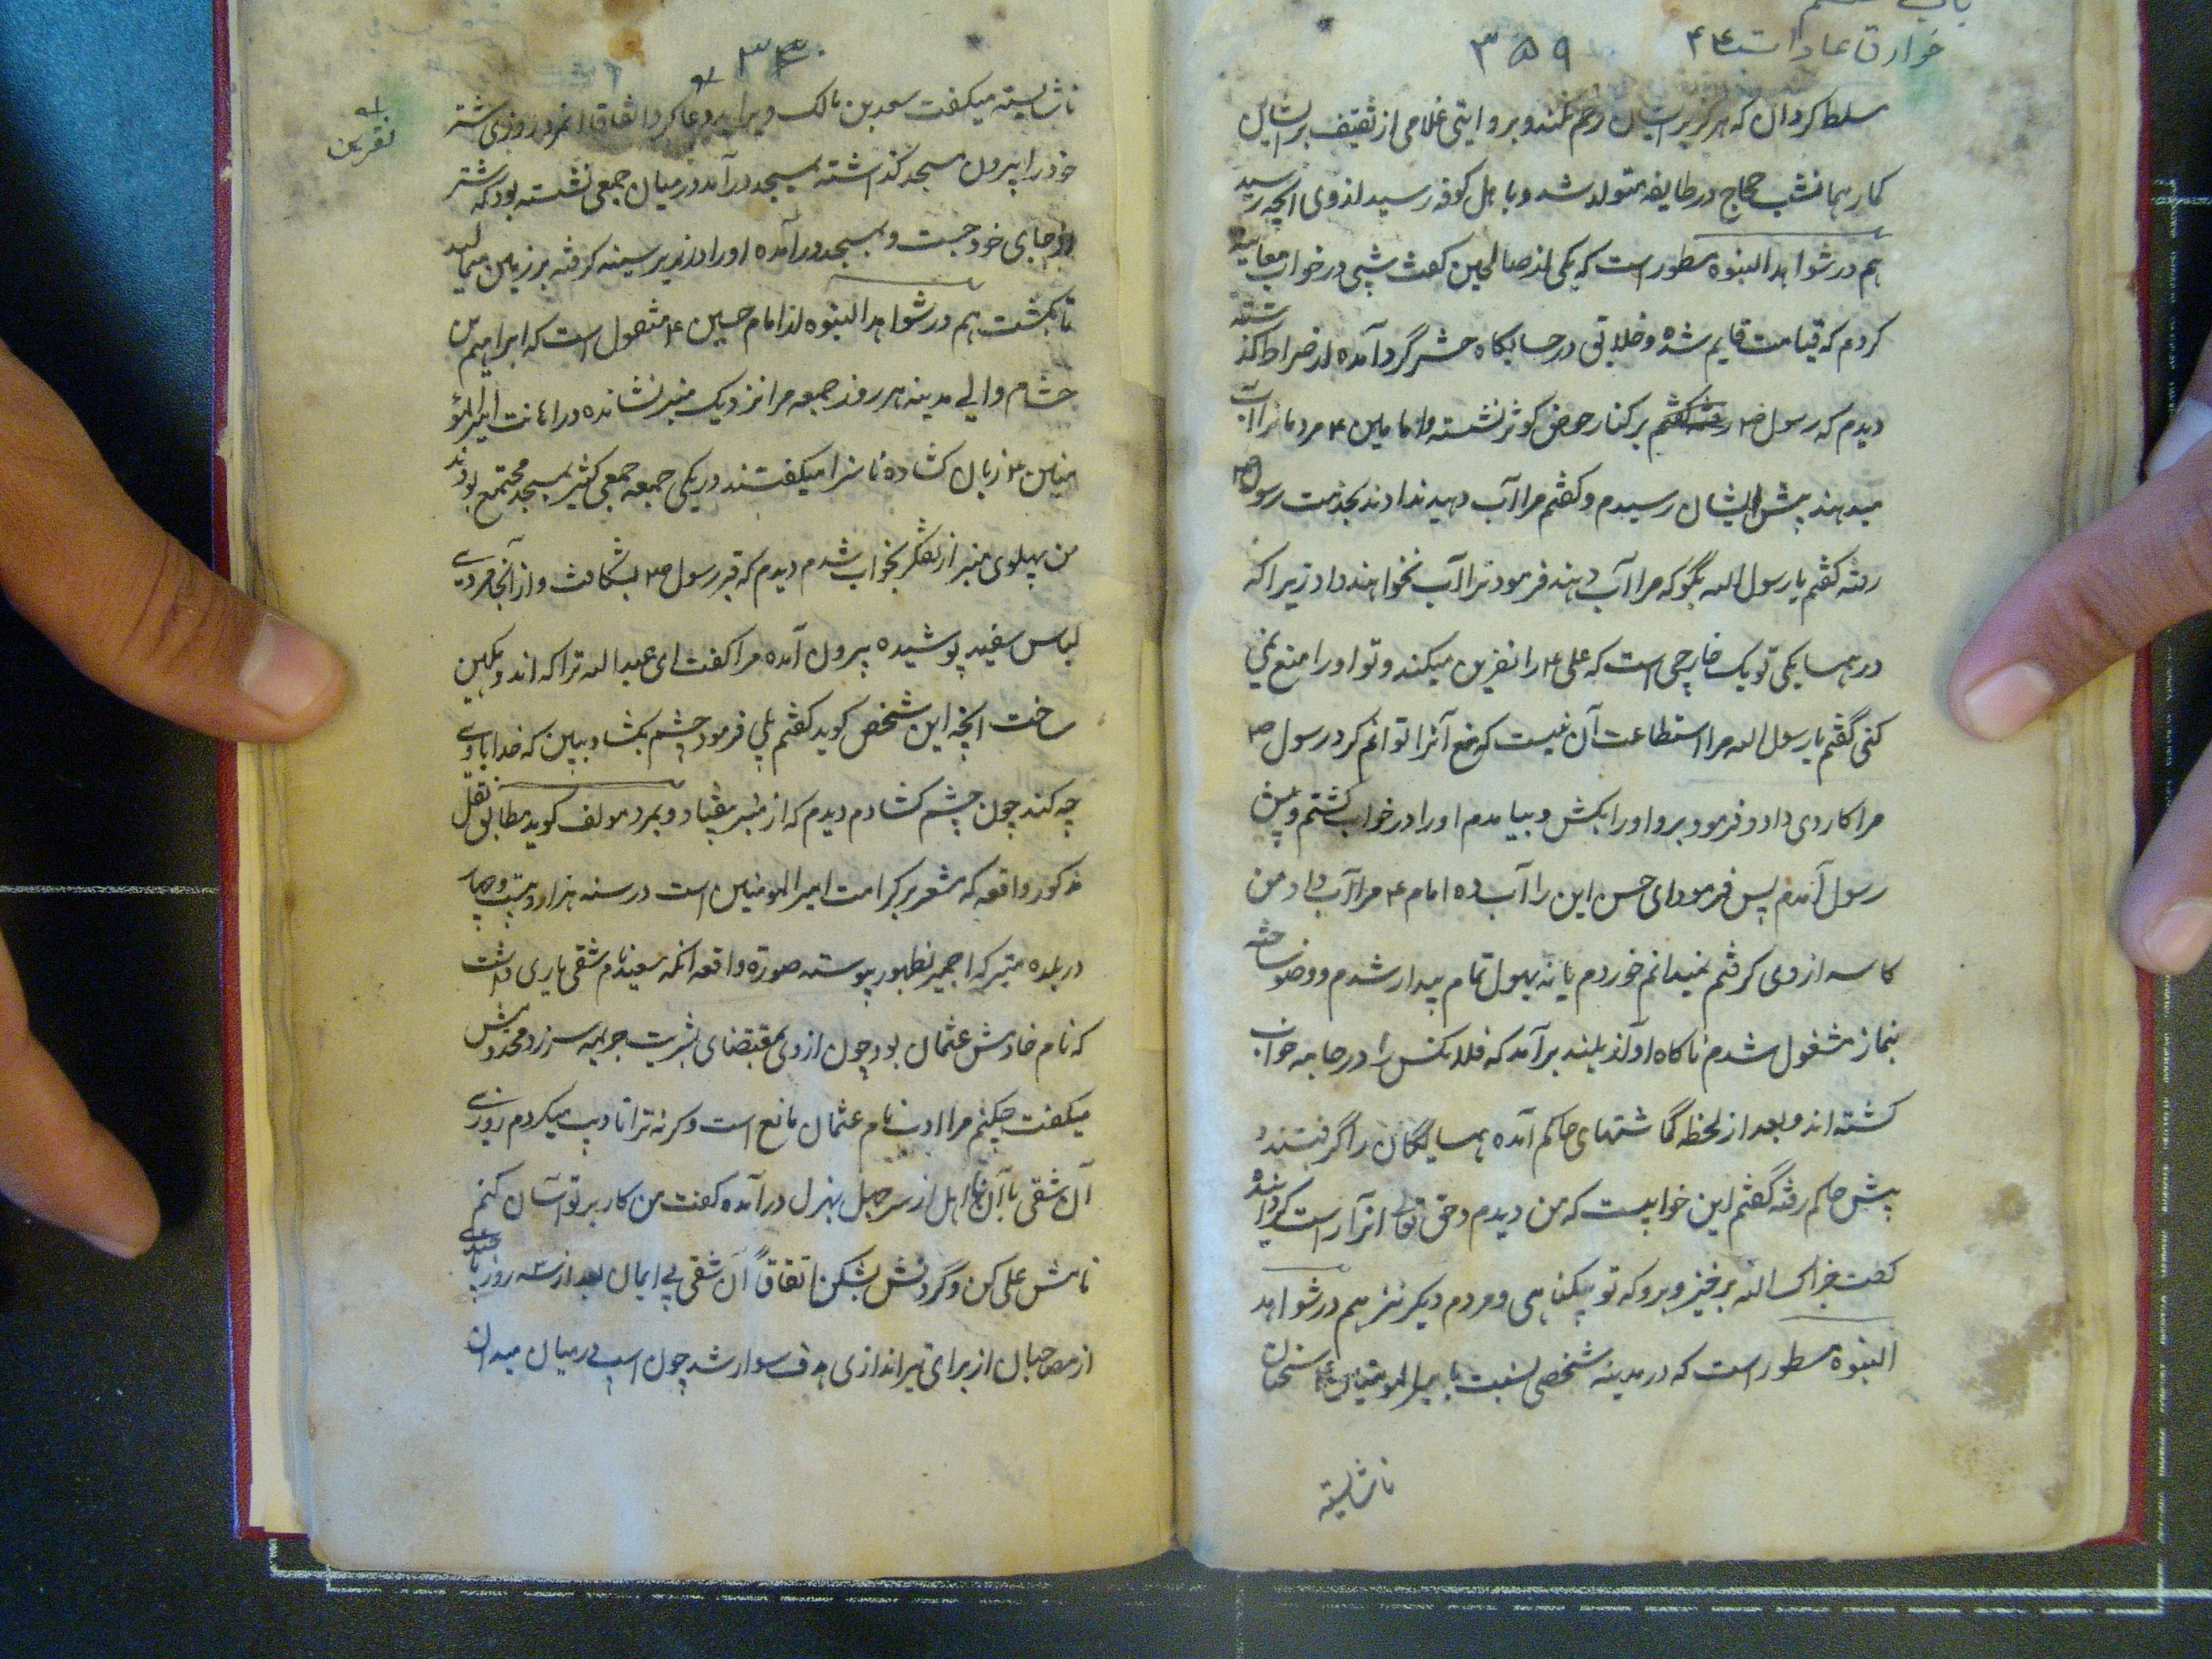 خوارق عادات ۴۴
۳۵۹
سلط کردان که هرگز بر ایشان رحم نکند و بروایتی غلامی از ثقیف بر ایشان
کمار همانشب حجاج در طایفه متولد شد و باهل کوفه رسید از وی انچه رسید
هم در شواهد النبوه مسطور است که یکی از صالحین کفت شبی در خواب معاینه
کردم که قیامت قایم شده و خلایق در حسابکاه حشر گرد آمده از صراط کذشته
دیدم که رسول ص بر کنار حوض کوثر نشسته و امامین ع مردمانرا آب
میدهند پیش ایشان رسیدم و کفتم مرا آب دهید ندادند بخذمت رسول ص
رفته کفتم یا رسول الله بگو که مرا آب دهند فرمود ترا آب نخواهند داد زیرا که
در همسایکی تو یک خارجی است که علی ع را نفرین میکند و تو او را منع نمی
کنی گفتم یا رسول الله مرا استطاعت آن نیست که منع آنرا توانم کرد رسول ص
مرا کاردی داد و فرمود برو او را بکش و بیا مدم او را در خواب کشتم و پیش
رسول آمدم پس فرمود ای حسن این را آب ده امام ع مرا آب داد من
کاسه از وی کرفتم نمیدانم خوردم یا نه بهول تمام بیدار شدم و وضو ساخته
بنماز مشغول شدم ناکاه آواز بلند برآمد که فلانکس را در جامه خواب
کشته اند و بعد از لحظه گماشتهای حاکم آمده همسایگان را گرفتند
پیش حاکم رفته گفتم این خوابیست که من دیدم و حق تعالی انرا راست کردانید
کفت جزاک الله برخیز و برو که تو بیکناهی و مردم دیکر نیز هم در شواهد
النبوه مسطور است که در مدینه شخصی نسبت بامیر المومنین ع سخنان
ناشایسته
۳۶۰
ناشایسته میکفت سعد بن مالک ویرا بد دعا کرد اتفاقا انمرد روزی شتر
نفرین
خود را بیرون مسجد کذاشته بمسجد درآمد در میان جمعی نشسته بود که شتر
از جای خود جست و بمسجد درآمده او را در زیر سینه کرفته بر زمین میمالید
تا بکشت هم در شواهد النبوه از امام حسین ع منقول است که ابراهیم بن
هشام والی مدینه هر روز جمعه مرا نزدیک منبر نشانده در اهانت امیر المؤ
منین ع زبان کشاده ناسزا میکفتند در یکی جمعه جمعی کثیر بمسجد مجتمع بودند
من پهلوی منبر از تفکر بخواب شدم دیدم که قبر رسول ص بشکافت و از آنجا مردی
لباس سفید پوشیده بیرون آمده مرا کفت ای عبد الله ترا که اندوهکین
ساخت انچه این شخص کوید کفتم بلی فرمود چشم بکشا و ببین که خدا با وی
چه کند چون چشم کشادم دیدم که از منبر بیفتاد و بمرد مولف کوید مطابق نقل
مذکور واقعه که مشعر بر کرامت امیر المومنین است در سنه هزار و بیست و چهار
در بلده متبرکه اجمیر بظهور پیوسته صورة واقعه انکه سعید نام شقی یاری داشت
که نام خادمش عثمان بود چون از وی بمقتضای بشریت جریمه سرزد مخدومش
میکفت چکنم مرا ادب نام عثمان مانع است وکرنه ترا تادیب میکردم روزی
آن شقی با آن نااهل از سر جهل بمنزل درآمده کفت من کار بر تو آسان کنم
نامش علی کن و گردنش بشکن اتفاقاً آن شقی بی ایمان بعد از سه روز با بعضی
از مصاحبان از برای تیراندازی هدف سوار شد چون اسپ در میان میدان